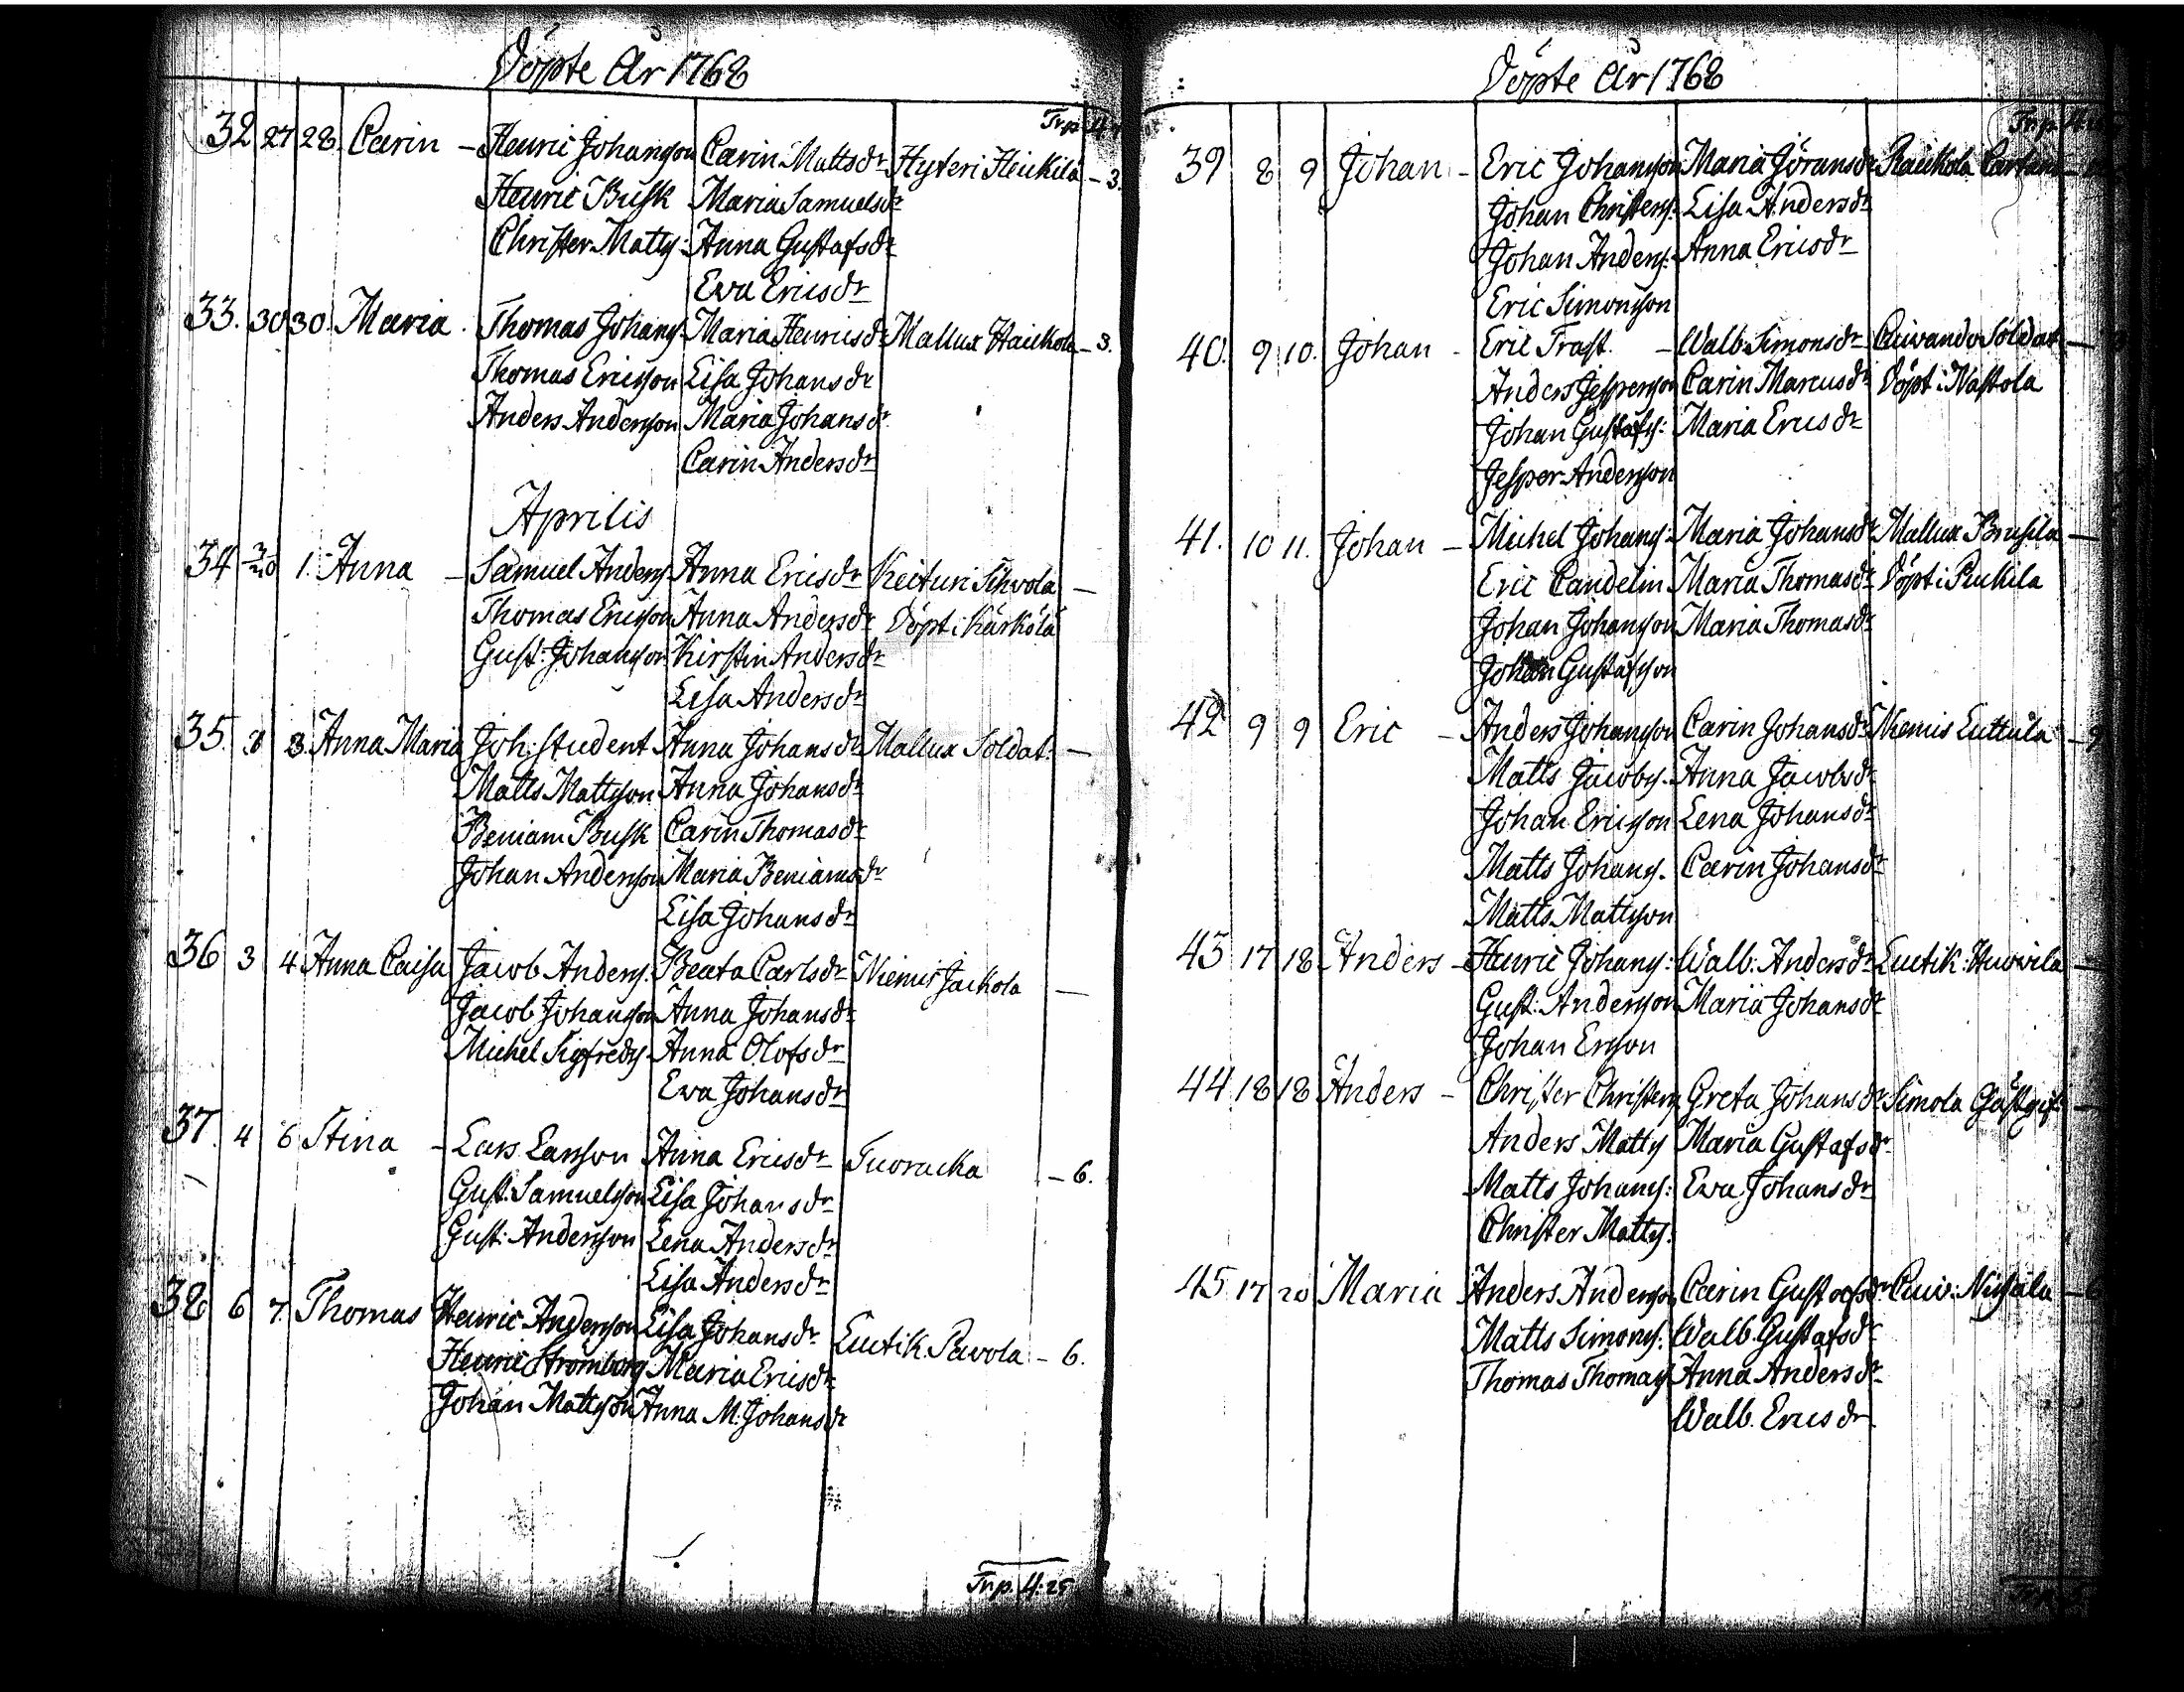 Döpte År 1768
Trp.
32 27 28 Carin – Henric Johansson Carin Mattsdr Hyteri Heickilä – 3.
Henric Busk Maria Samuelsdr
Christer Matts: Anna Gustafsdr
Eva Ericsdr
33. 30 30. Maria Thomas Johans: Maria Henricsdr Mallux Haickola – 3.
Thomas Ericsson Lisa Johansdr
Anders Andersson Maria Johansdr
Carin Andersdr
Aprilis
34 1. Anna – Samuel Anders: Anna Ericsdr Keituri Sihvola –
Thomas Ericsson Anna Andersdr Döpt i Kärkölä
Gust: Johansson Kirstin Andersdr
Lisa Andersdr
35. 3. Anna Maria Joh: Student Anna Johansdr Mallux Soldat: –
Matts Mattsson Anna Johansdr
Beniam Busk Carin Thomasdr
Johan Andersson Maria Beniamsdr
Lisa Johansdr
36 3 4 Anna Caisa Jacob Anders: Beata Carlsdr Niemis Jackola –
Jacob Johansson Anna Johansdr
Michel Sigfreds: Anna Olofsdr
Ewa Johansdr
37. 4 6 Stina – Lars Larsson Anna Ericsdr Tuoracka – 6.
Gust: Samuelsson Lisa Johansdr
Gust: Andersson Lena Andersdr
Lisa Andersdr
38 6 7. Thomas Henric Andersson Lisa Johansdr Luctik. Pavola – 6.
Henric Stromberg Maria Ericsdr
Johan Mattsson Anna M. Johansdr
Trp. 4:25
Döpte År 1768
Trp.
39 8 9 Johan – Eric Johansson Maria Jöransdr Raickola
Johan Christers: Lisa Andersdr
Johan Anders: Anna Ericsdr
Eric Simonsson
40. 9 10. Johan – Eric Trast. – Walb: Simonsdr Cuivando Soldat –
Anders Jespersson Carin Marcusdr Döpt i Nastola
Johan Gustafs: Maria Ericsdr
Jesper Andersson
41. 10 11. Johan – Michel Johans: Maria Johansdr Mallux Brusila –
Eric Candelin Maria Thomasdr Döpt i Puckila
Johan Johansson Maria Thomasdr
Johan Gustafsson
42 9 9 Eric – Anders Johansson Carin Johansdr Niemis Luttula – 9
Matts Jacobs: Anna Jacobsdr
Johan Ericsson Lena Johansdr
Matts Johans: Carin Johansdr
Matts Mattsson
43 17 18 Anders – Henric Johans: Walb: Andersdr Luctik: Huovila –
Gust: Andersson Maria Johansdr
Johan Ersson
44 18 18 Anders – Christer Christers: Greta Johansdr Simola Gästgif: –
Anders Matts: Maria Gustafsdr
Matts Johans: Ewa Johansdr
Christer Matts:
45 17 20 Maria Anders Andersson Carin Gustafsdr Cuiv: Nissala –
Matts Simons: Walb. Gustafsdr
Thomas Thomas: Anna Andersdr
Walb. Ericsdr